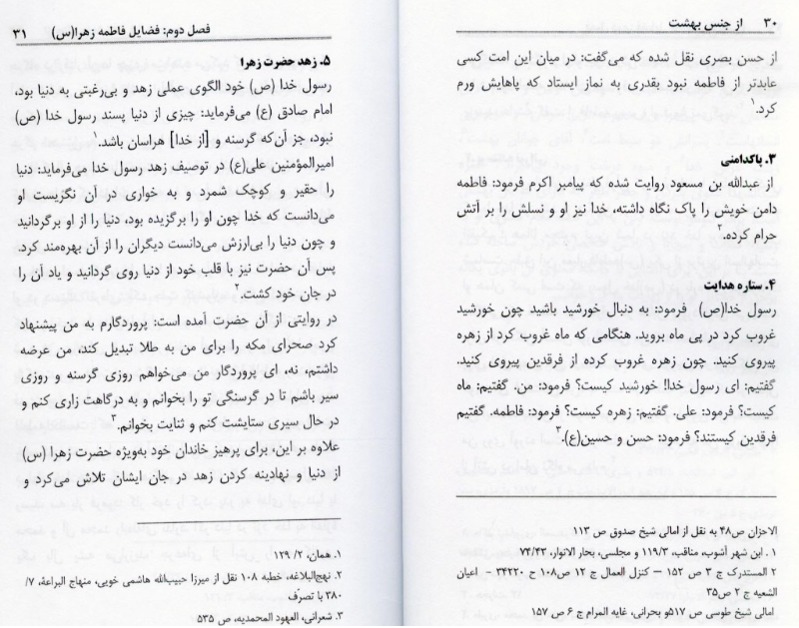 ۳۰ از جنس بهشت
از حسن بصری نقل شده که می‌گفت: در میان این امت کسی
عابدتر از فاطمه نبود بقدری به نماز ایستاد که پاهایش ورم
کرد.۱
۳. پاکدامنی
از عبدالله بن مسعود روایت شده که پیامبر اکرم فرمود: فاطمه
دامن خویش را پاک نگاه داشته، خدا نیز او و نسلش را بر آتش
حرام کرده.۲
۴. ستاره هدایت
رسول خدا(ص) فرمود: به دنبال خورشید باشید چون خورشید
غروب کرد در پی ماه بروید. هنگامی که ماه غروب کرد از زهره
پیروی کنید. چون زهره غروب کرده از فرقدین پیروی کنید.
گفتیم: ای رسول خدا! خورشید کیست؟ فرمود: من. گفتیم: ماه
کیست؟ فرمود: علی. گفتیم: زهره کیست؟ فرمود: فاطمه. گفتیم
فرقدین کیستند؟ فرمود: حسن و حسین(ع).۳
الاحزان ص۴۸ به نقل از امالی شیخ صدوق ص ۱۱۳
۱ . ابن شهر آشوب، مناقب، ۱۱۹/۳ و مجلسی، بحار الانوار، ۷۴/۴۳
۲ المستدرک ج ۳ ص ۱۵۲ – کنزل العمال ج ۱۲ ص۱۰۸ ح ۳۴۲۲۰ - اعیان
الشعیه ج ۲ ص۳۵
امالی شیخ طوسی ص ۵۱۷و بحرانی، غایه المرام ج ۶ ص ۱۵۷
فصل دوم: فضایل فاطمه زهرا(س) ۳۱
۵. زهد حضرت زهرا
رسول خدا (ص) خود الگوی عملی زهد و بی‌رغبتی به دنیا بود،
امام صادق (ع) می‌فرماید: چیزی از دنیا پسند رسول خدا (ص)
نبود، جز آن‌که گرسنه و [از خدا] هراسان باشد.۱
امیرالمؤمنین علی(ع) در توصیف زهد رسول خدا می‌فرماید: دنیا
را حقیر و کوچک شمرد و به خواری در آن نگریست او
می‌دانست که خدا چون او را برگزیده بود، دنیا را از او برگردانید
و چون دنیا را بی‌ارزش می‌دانست دیگران را از آن بهره‌مند کرد.
پس آن حضرت نیز با قلب خود از دنیا روی گردانید و یاد آن را
در جان خود کشت.۲
در روایتی از آن حضرت آمده است: پروردگارم به من پیشنهاد
کرد صحرای مکه را برای من به طلا تبدیل کند، من عرضه
داشتم، نه، ای پروردگار من می‌خواهم روزی گرسنه و روزی
سیر باشم تا در گرسنگی تو را بخوانم و به درگاهت زاری کنم و
در حال سیری ستایشت کنم و ثنایت بخوانم.۳
علاوه بر این، برای پرهیز خاندان خود به‌ویژه حضرت زهرا (س)
از دنیا و نهادینه کردن زهد در جان ایشان تلاش می‌کرد و
۱. همان، ۲/ ۱۲۹
۲. نهج‌البلاغه، خطبه ۱۰۸ نقل از میرزا حبیب‌الله هاشمی خویی، منهاج البراعة، ۷/
۳۸۰ با تصرّف
۳. شعرانی، العهود المحمدیه، ص ۵۳۵